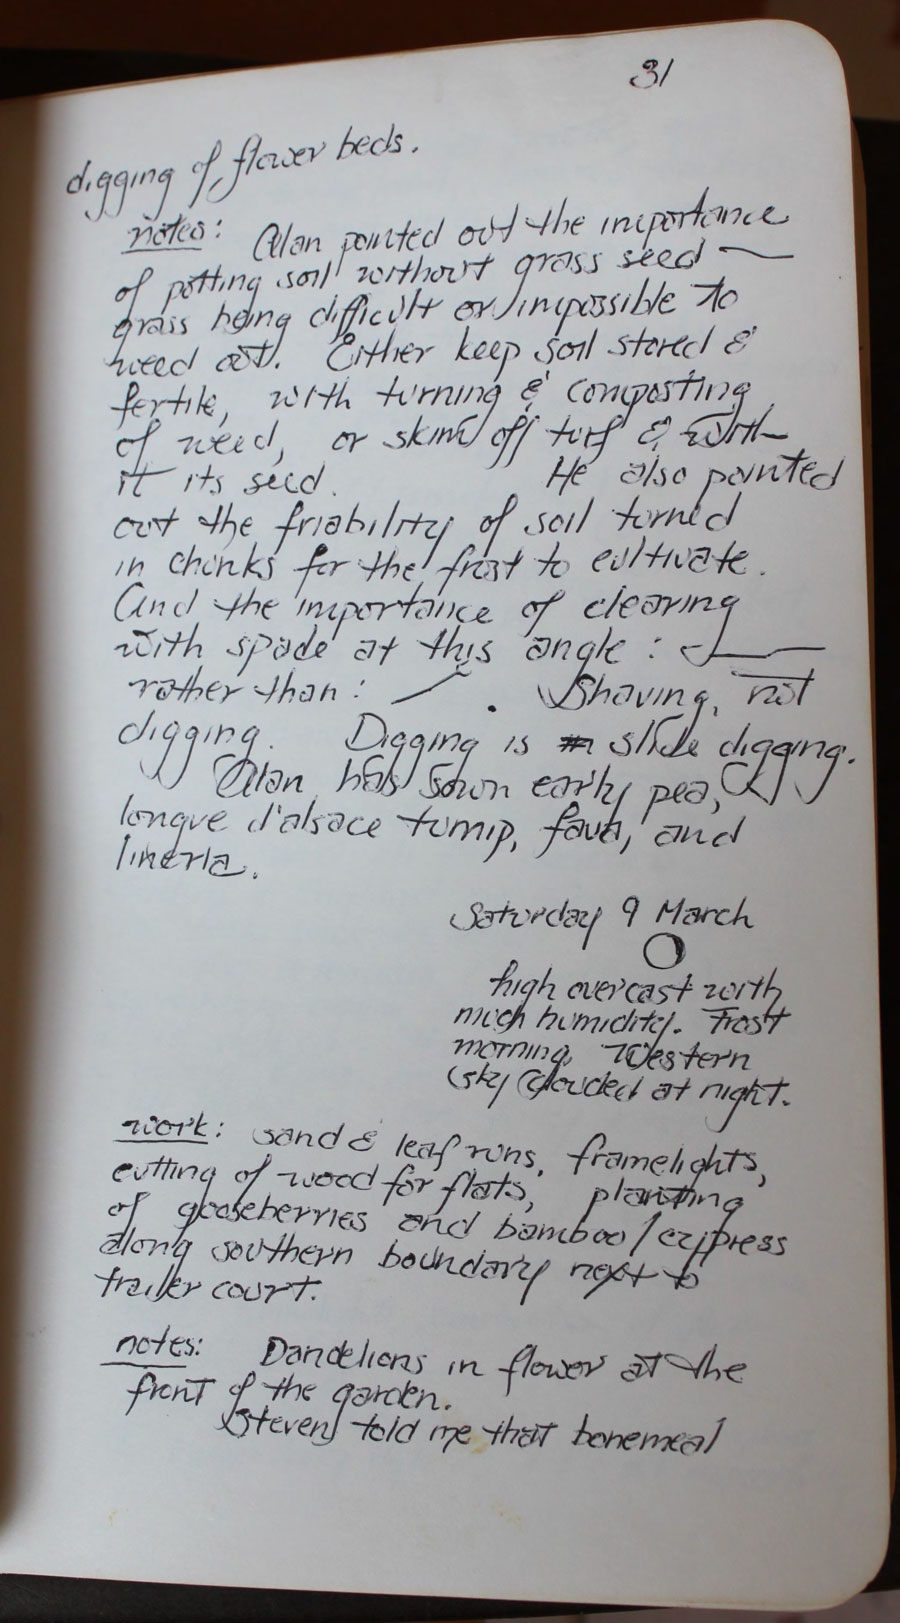 31
digging of flower beds.
notes: Alan pointed out the importance
of potting soil without grass seed —
grass being difficult or impossible to
weed out. Either keep soil stored &
fertile, with turning & composting
of weed, or skim off turf & with
it its seed. He also pointed
out the friability of soil turned
in chunks for the frost to cultivate.
And the importance of clearing
with spade at this angle:
rather than: . Shaving, not
digging. Digging is slice digging.
Alan has sown early pea,
longue d'alsace turnip, fava, and
lineria.
Saturday 9 March
high overcast with
much humidity. Frost
morning. Western
sky clouded at night.
work: sand & leaf runs, framelights,
cutting of wood for flats, planting
of gooseberries and bamboo/cypress
along southern boundary next to
trailer court.
notes: Dandelions in flower at the
front of the garden.
Steven told me that bonemeal